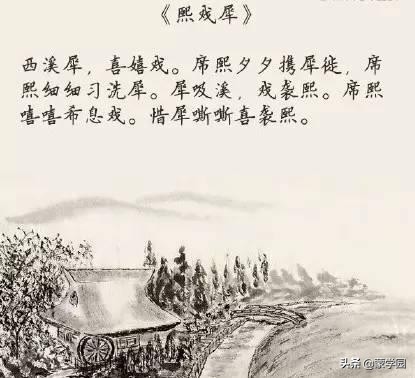 《熙戏犀》
西溪犀，喜嬉戏。席熙夕夕携犀徙，席
熙细细习洗犀。犀吸溪，戏袭熙。席熙
嘻嘻希息戏。惜犀嘶嘶喜袭熙。
头条 @蒙学园